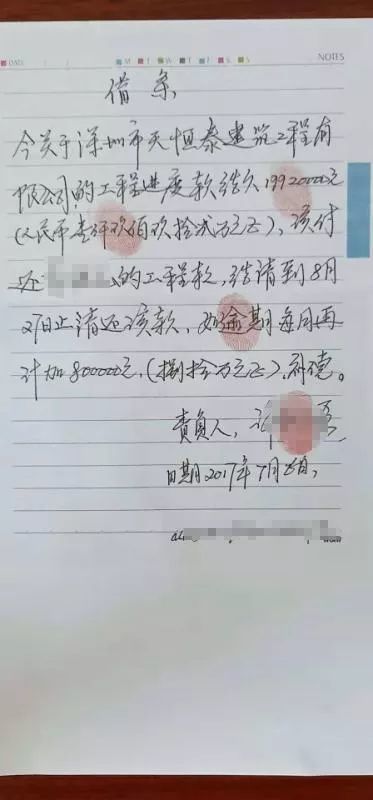 DATE / / M T W T F S S NOTES
借条
今关于深圳市天恒泰建筑工程有
限公司的工程进度款结欠19920000元
(人民币壹仟玖佰玖拾贰万元正),该付
还 的工程款,结请到8月
27日止清还该款,如逾期每月再
计加800000元,(捌拾万元正),补德。
责负人,许
日期2017年7月 日,